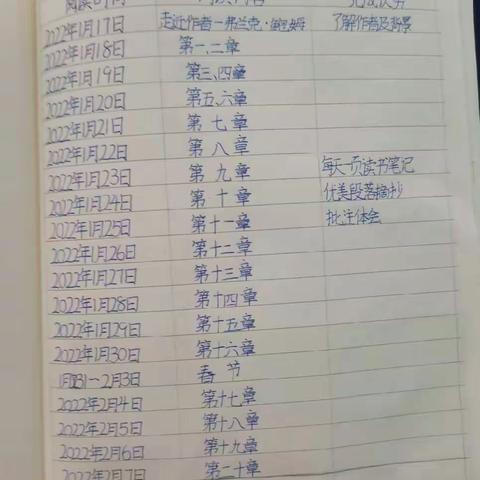 阅读时间 阅读内容 完成状况
2022年1月17日 走近作者—弗兰克·鲍姆 了解作者及背景
2022年1月18日 第一、二章
2022年1月19日 第三、四章
2022年1月20日 第五、六章
2022年1月21日 第七章
2022年1月22日 第八章
2022年1月23日 第九章 每天一页读书笔记
2022年1月24日 第十章 优美段落摘抄
2022年1月25日 第十一章 批注体会
2022年1月26日 第十二章
2022年1月27日 第十三章
2022年1月28日 第十四章
2022年1月29日 第十五章
2022年1月30日 第十六章
1月31—2月3日 春节
2022年2月4日 第十七章
2022年2月5日 第十八章
2022年2月6日 第十九章
2022年2月7日 第二十章